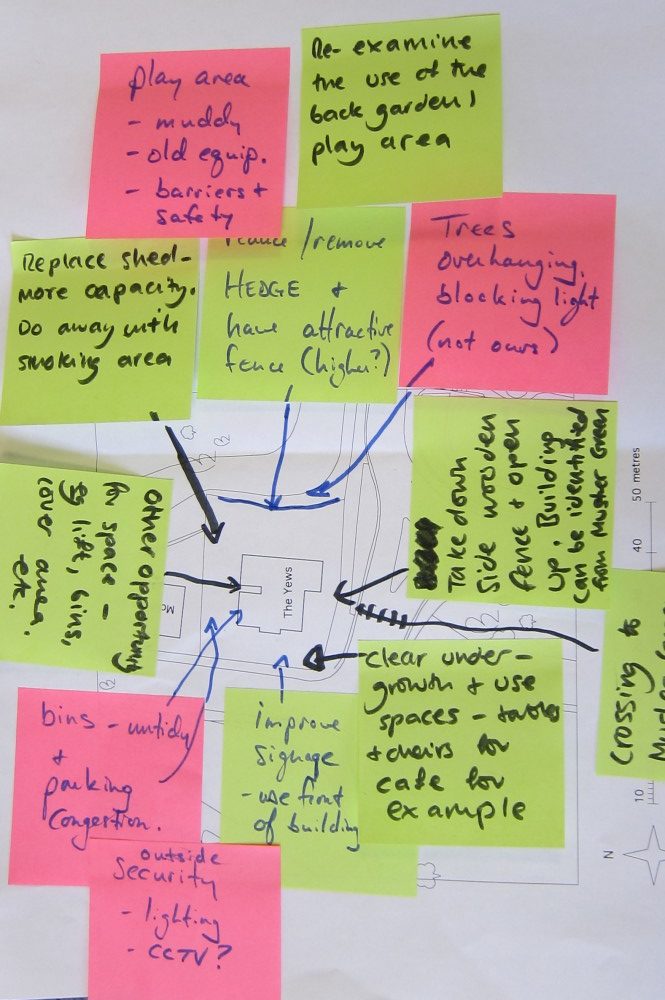 Play area
- muddy
- old equip.
- barriers +
safety
Re-examine
the use of the
back garden /
play area
Replace shed -
more capacity.
Do away with
smoking area
/remove
HEDGE +
have attractive
fence (higher?)
Trees
overhanging,
blocking light
(not ours)
Take down
side wooden
fence + open
up. Building
can be identified
from Muster Green
Other opportunity
for space -
eg lift, bins,
cover area.
etc.
The Yews
50 metres
40
10
N
Crossing to
clear under-
growth + use
spaces - tables
+ chairs for
cafe for
example
bins - untidy
+
parking
congestion.
improve
signage
- use front
of building
outside
security
- lighting
- CCTV?